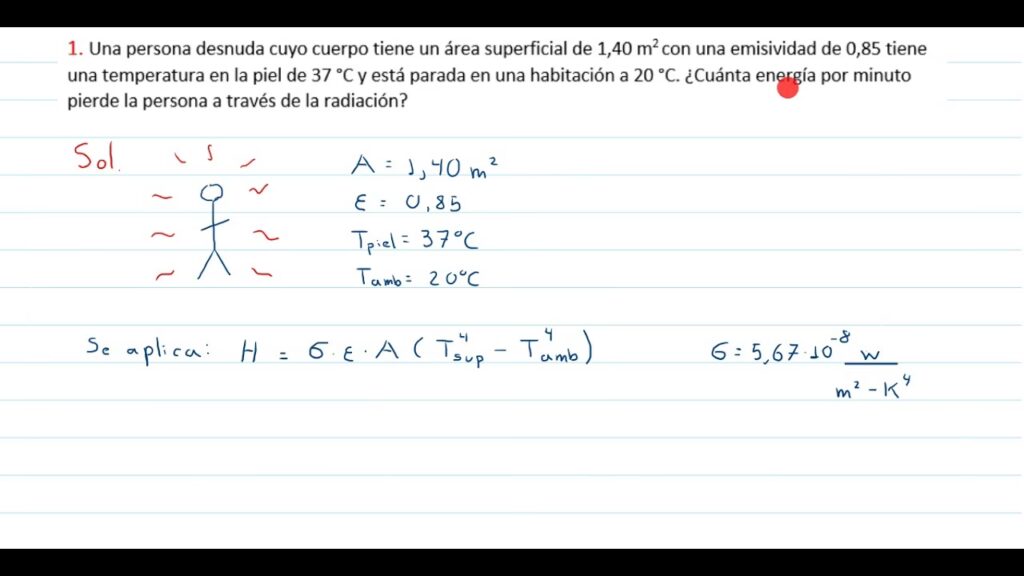 1. Una persona desnuda cuyo cuerpo tiene un área superficial de 1,40 m² con una emisividad de 0,85 tiene
una temperatura en la piel de 37 °C y está parada en una habitación a 20 °C. ¿Cuánta energía por minuto
pierde la persona a través de la radiación?
Sol.
A = 1,40 m²
ε = 0,85
Tpiel = 37°C
Tamb = 20°C
Se aplica: H = σ·ε·A (T⁴sup − T⁴amb)
σ = 5,67·10⁻⁸ w
m² - K⁴